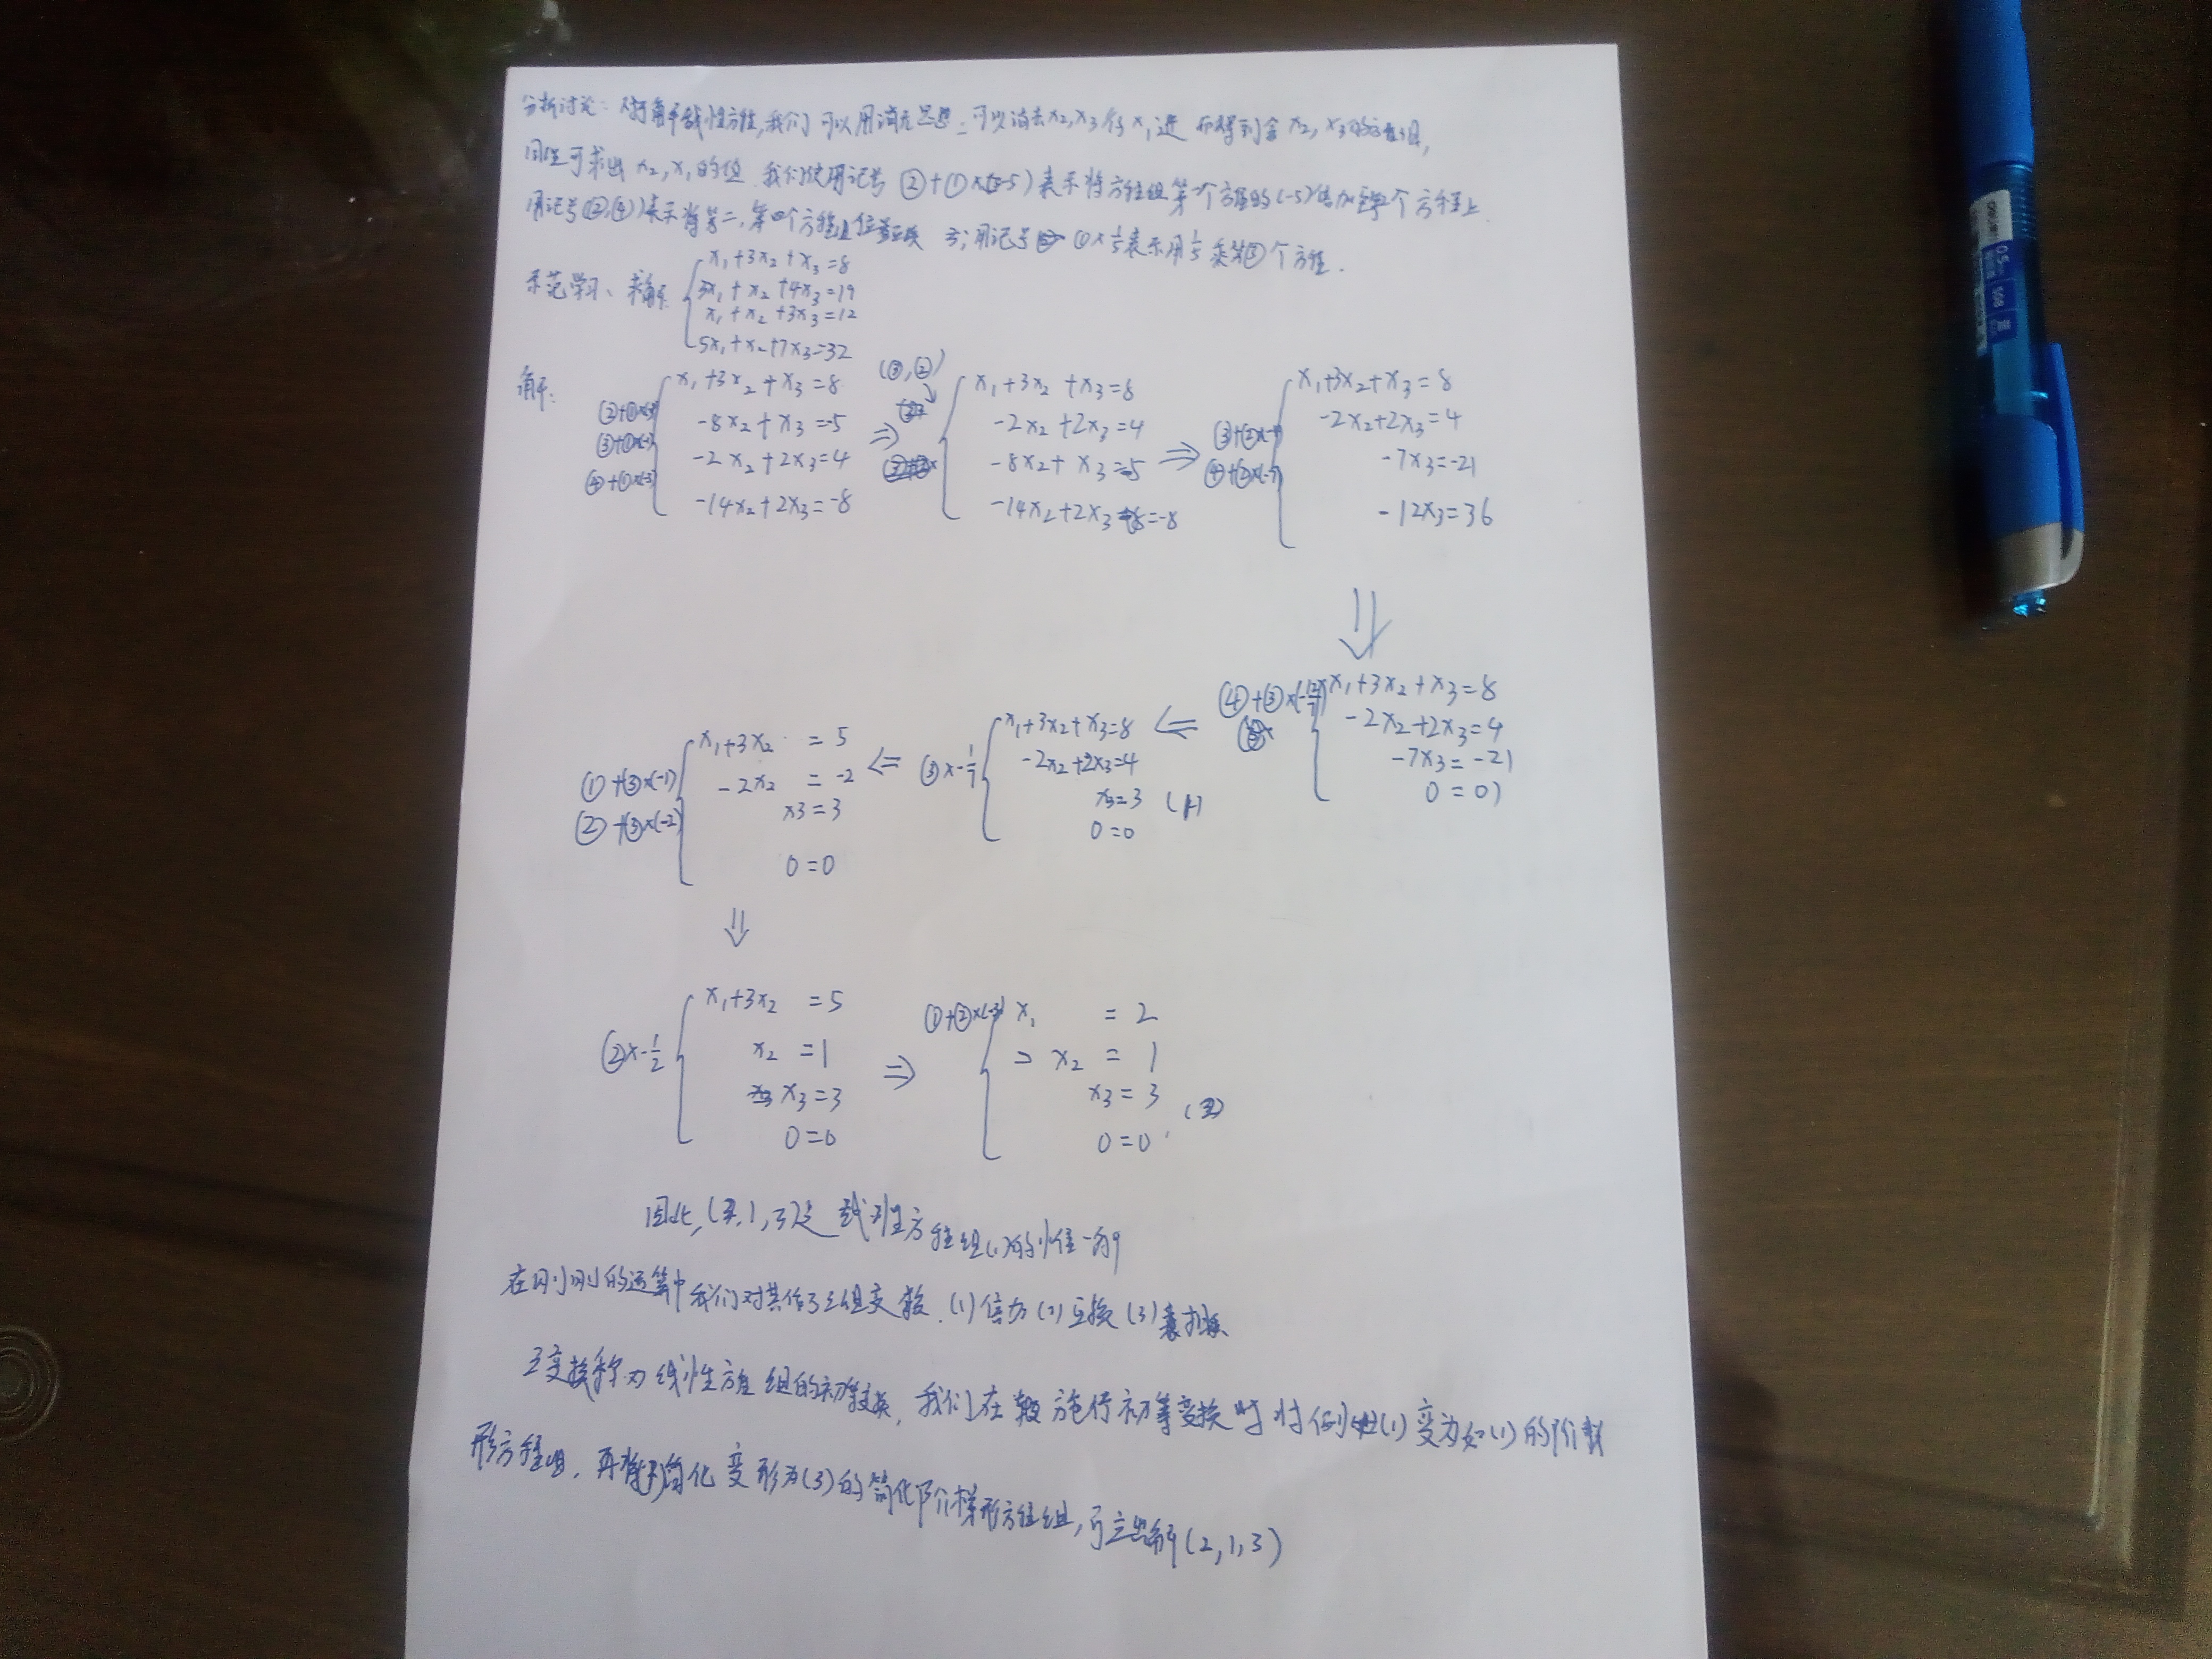 分析讨论：对解线性方程,我们可以用消元思想：可以消去x₂,x₃得x₁,进而得到含x₂,x₃的方程组,
同理可求出x₂,x₁的值.我们使用记号②+①×(-5)表示将方程组第一个方程的(-5)倍加到第2个方程上.
用记号(②,④)表示将第二、第四个方程位置互换;用记号①×1/5表示用1/5乘第①个方程.
示范学习、求解:
x₁+3x₂+x₃=8
3x₁+x₂+4x₃=19
x₁+x₂+3x₃=12
5x₁+x₂+7x₃=32
解:
②+①×(-3)
③+①×(-1)
④+①×(-3)
x₁+3x₂+x₃=8
-8x₂+x₃=-5
-2x₂+2x₃=4
-14x₂+2x₃=-8
⇒
(③,②)
x₁+3x₂+x₃=8
-2x₂+2x₃=4
-8x₂+x₃=-5
-14x₂+2x₃=-8
⇒
③+②×(-4)
④+②×(-7)
x₁+3x₂+x₃=8
-2x₂+2x₃=4
-7x₃=-21
-12x₃=36
⇓
④+③×(-12/7)
x₁+3x₂+x₃=8
-2x₂+2x₃=4
-7x₃=-21
0=0
⇐
③×-1/7
x₁+3x₂+x₃=8
-2x₂+2x₃=4
x₃=3 (1)
0=0
⇐
①+③×(-1)
②+③×(-2)
x₁+3x₂=5
-2x₂=-2
x3=3
0=0
⇓
②×-1/2
x₁+3x₂=5
x₂=1
x₃=3
0=0
⇒
①+②×(-3)
x₁=2
x₂=1
x₃=3
0=0. (2)
因此,(2,1,3)是线性方程组(1)的唯一解
在刚刚的运算中我们对其作了三组变换.(1)倍加(2)互换(3)
三变换称为线性方程组的初等变换,我们在施行初等变换时将例(1)变为如(1)的阶梯
形方程组,再将简化变形为(3)的简化阶梯形方程组,可立出解(2,1,3)